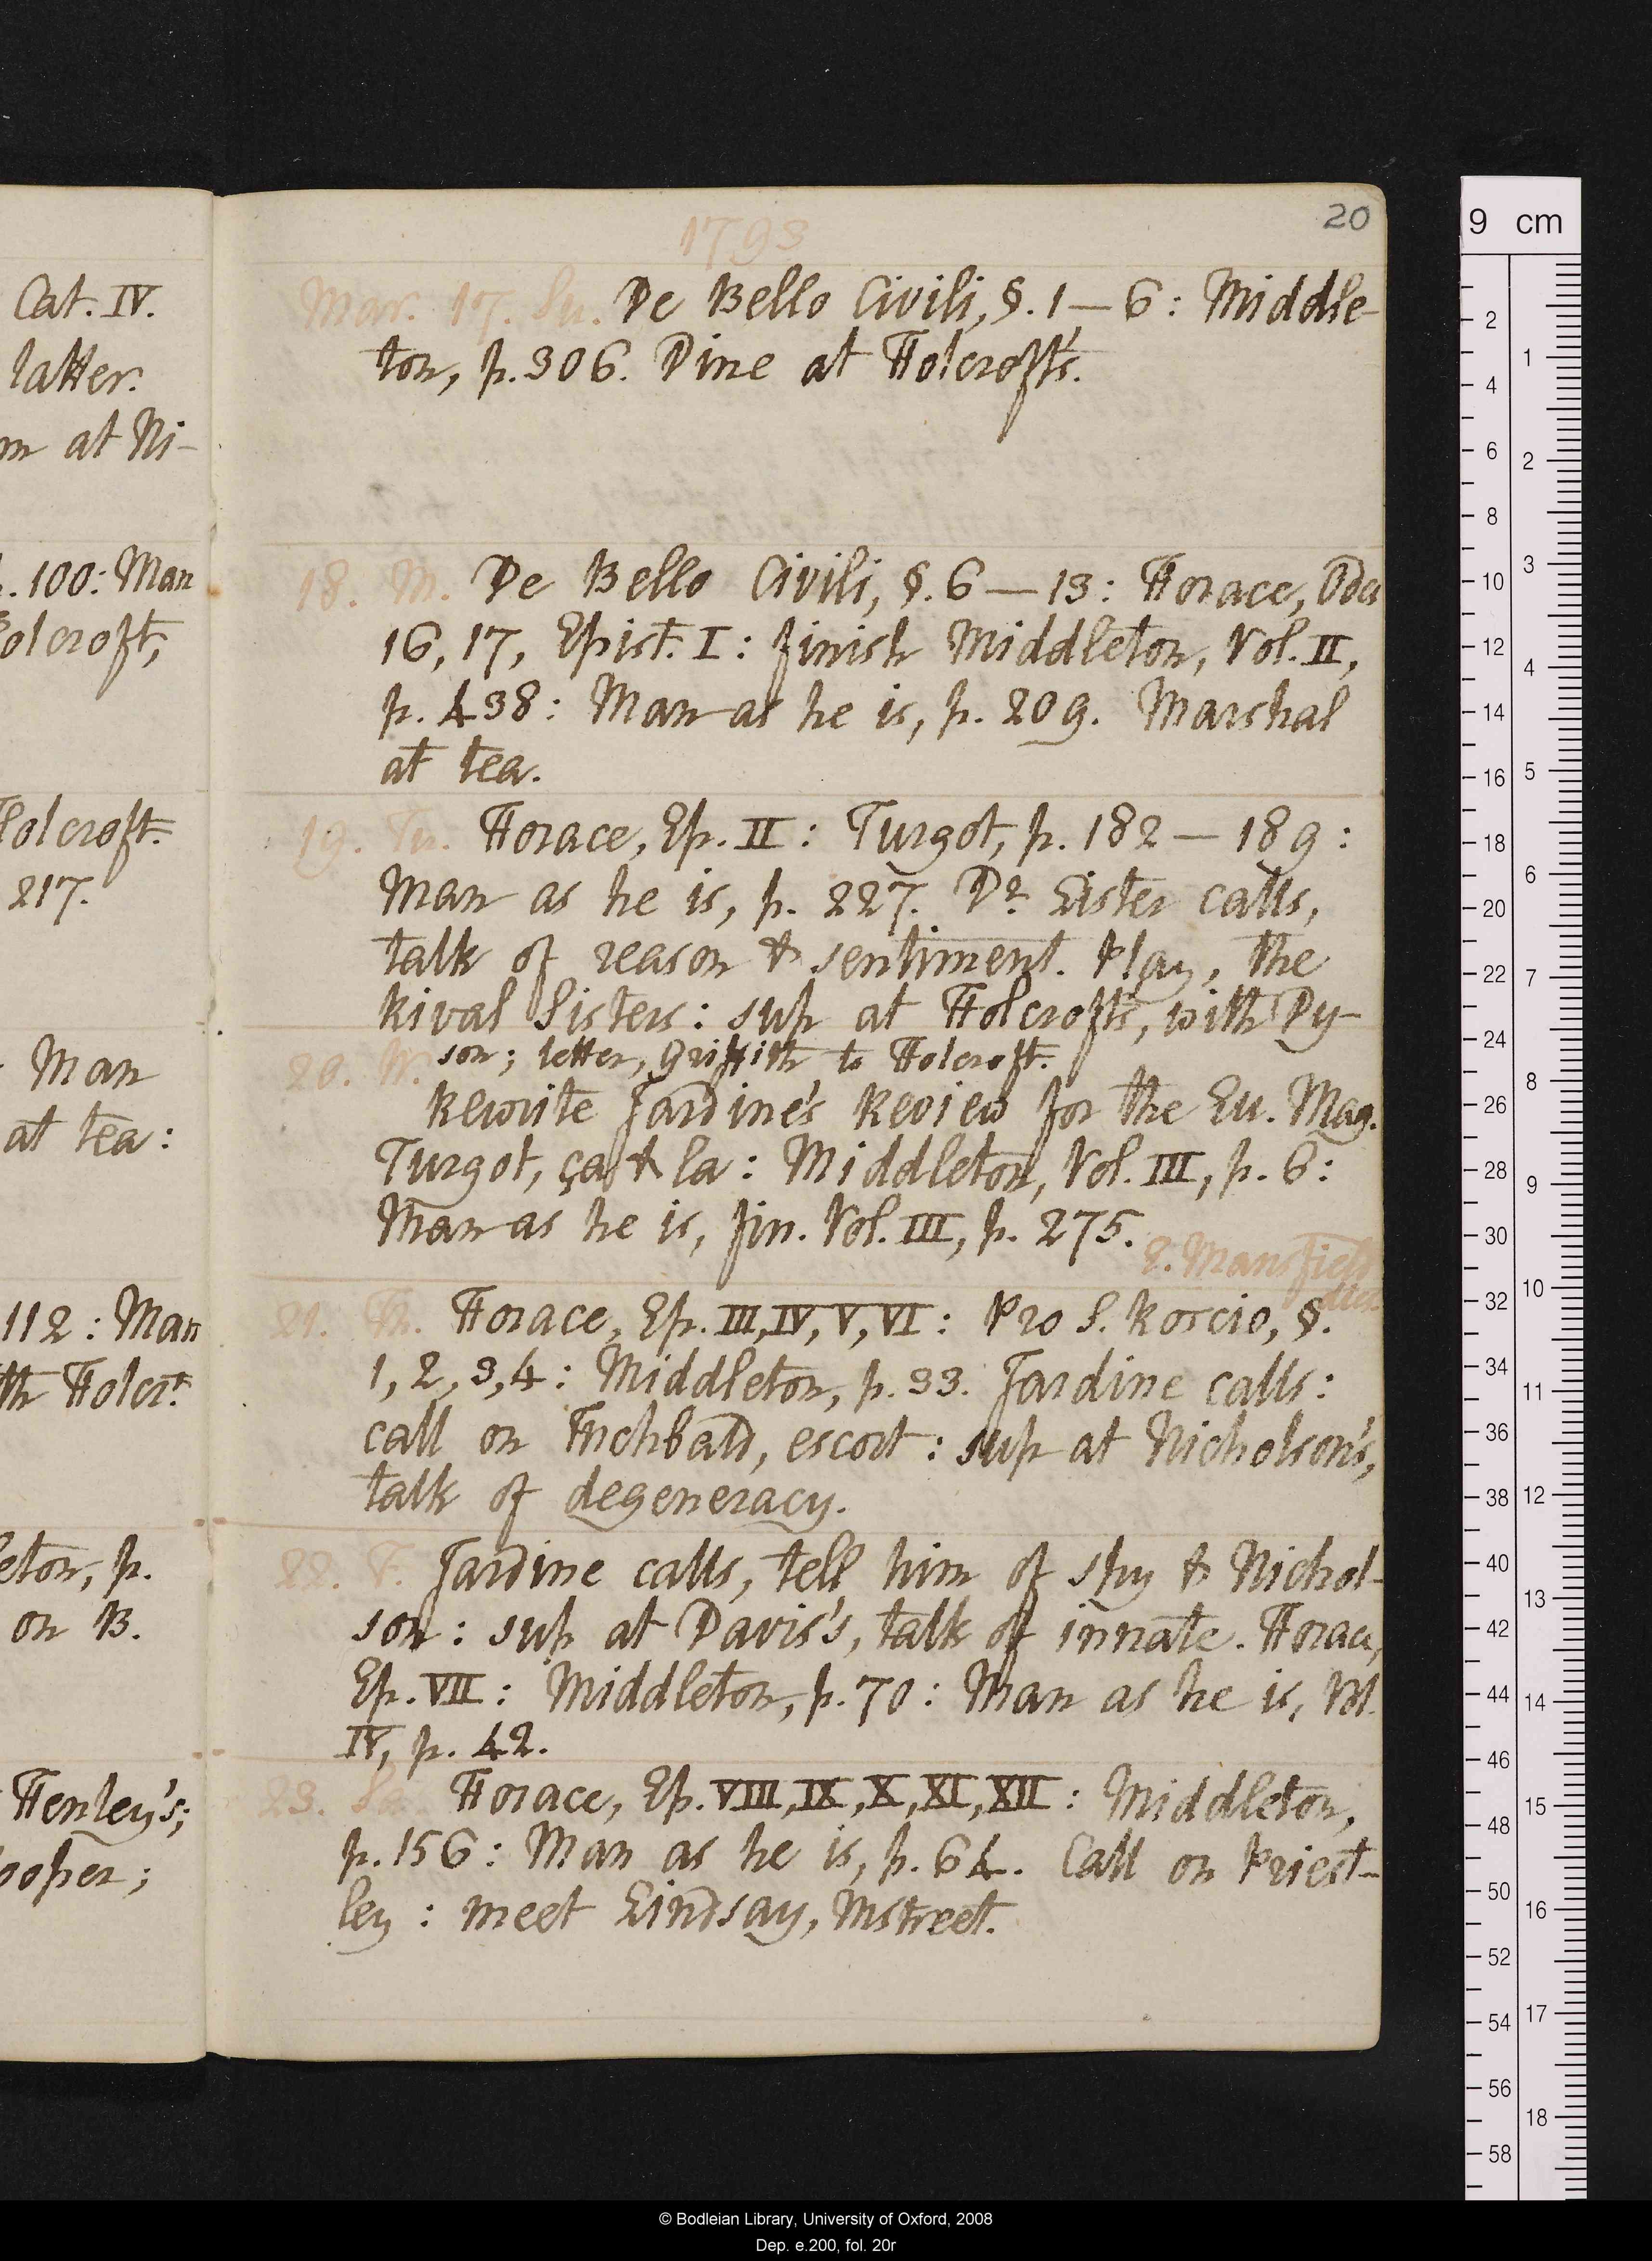 20
1793
Cat. IV.
latter.
m at Ni-
. 100: Man
olcroft,
Holcroft.
217.
Man
at tea:
112: Man
th Holcrt.
eton, p.
on B.
Henley's;
ooper;
Mar. 17. Su. De Bello Civili, §. 1—6: Middle-
ton, p. 306. Dine at Holcroft's.
18. M. De Bello Civili, §. 6—13: Horace, Oda
16, 17, Epist. I: finish Middleton, Vol. II,
p. 438: Man as he is, p. 209. Marshal
at tea.
19. Tu. Horace, Ep. II: Turgot, p. 182—189:
Man as he is, p. 227. Dr Lister calls,
talk of reason & sentiment. Play, the
Rival Sisters: sup at Holcroft's, with Dy-
son; letter, Griffith to Holcroft.
20. W.
Rewrite Jardine's Review for the Eu. Mag.
Turgot, ça & la: Middleton, Vol. III, p. 6:
Man as he is, fin. Vol. III, p. 275.
E. Mansfield
dies.
21. Th. Horace, Ep. III, IV, V, VI: Pro S. Roscio, §.
1, 2, 3, 4: Middleton, p. 33. Jardine calls:
call on Inchbald, escort: sup at Nicholson's,
talk of degeneracy.
22. F. Jardine calls, tell him of spy & Nichol-
son: sup at Davis's, talk of innate. Horace,
Ep. VII: Middleton, p. 70: Man as he is, Vol.
IV, p. 42.
23. Sa. Horace, Ep. VIII, IX, X, XI, XII: Middleton,
p. 156: Man as he is, p. 64. Call on Priest-
ley: meet Lindsay, Mstreet.
9 cm
2
4
6
8
10
12
14
16
18
20
22
24
26
28
30
32
34
36
38
40
42
44
46
48
50
52
54
56
58
1
2
3
4
5
6
7
8
9
10
11
12
13
14
15
16
17
18
© Bodleian Library, University of Oxford, 2008
Dep. e.200, fol. 20r